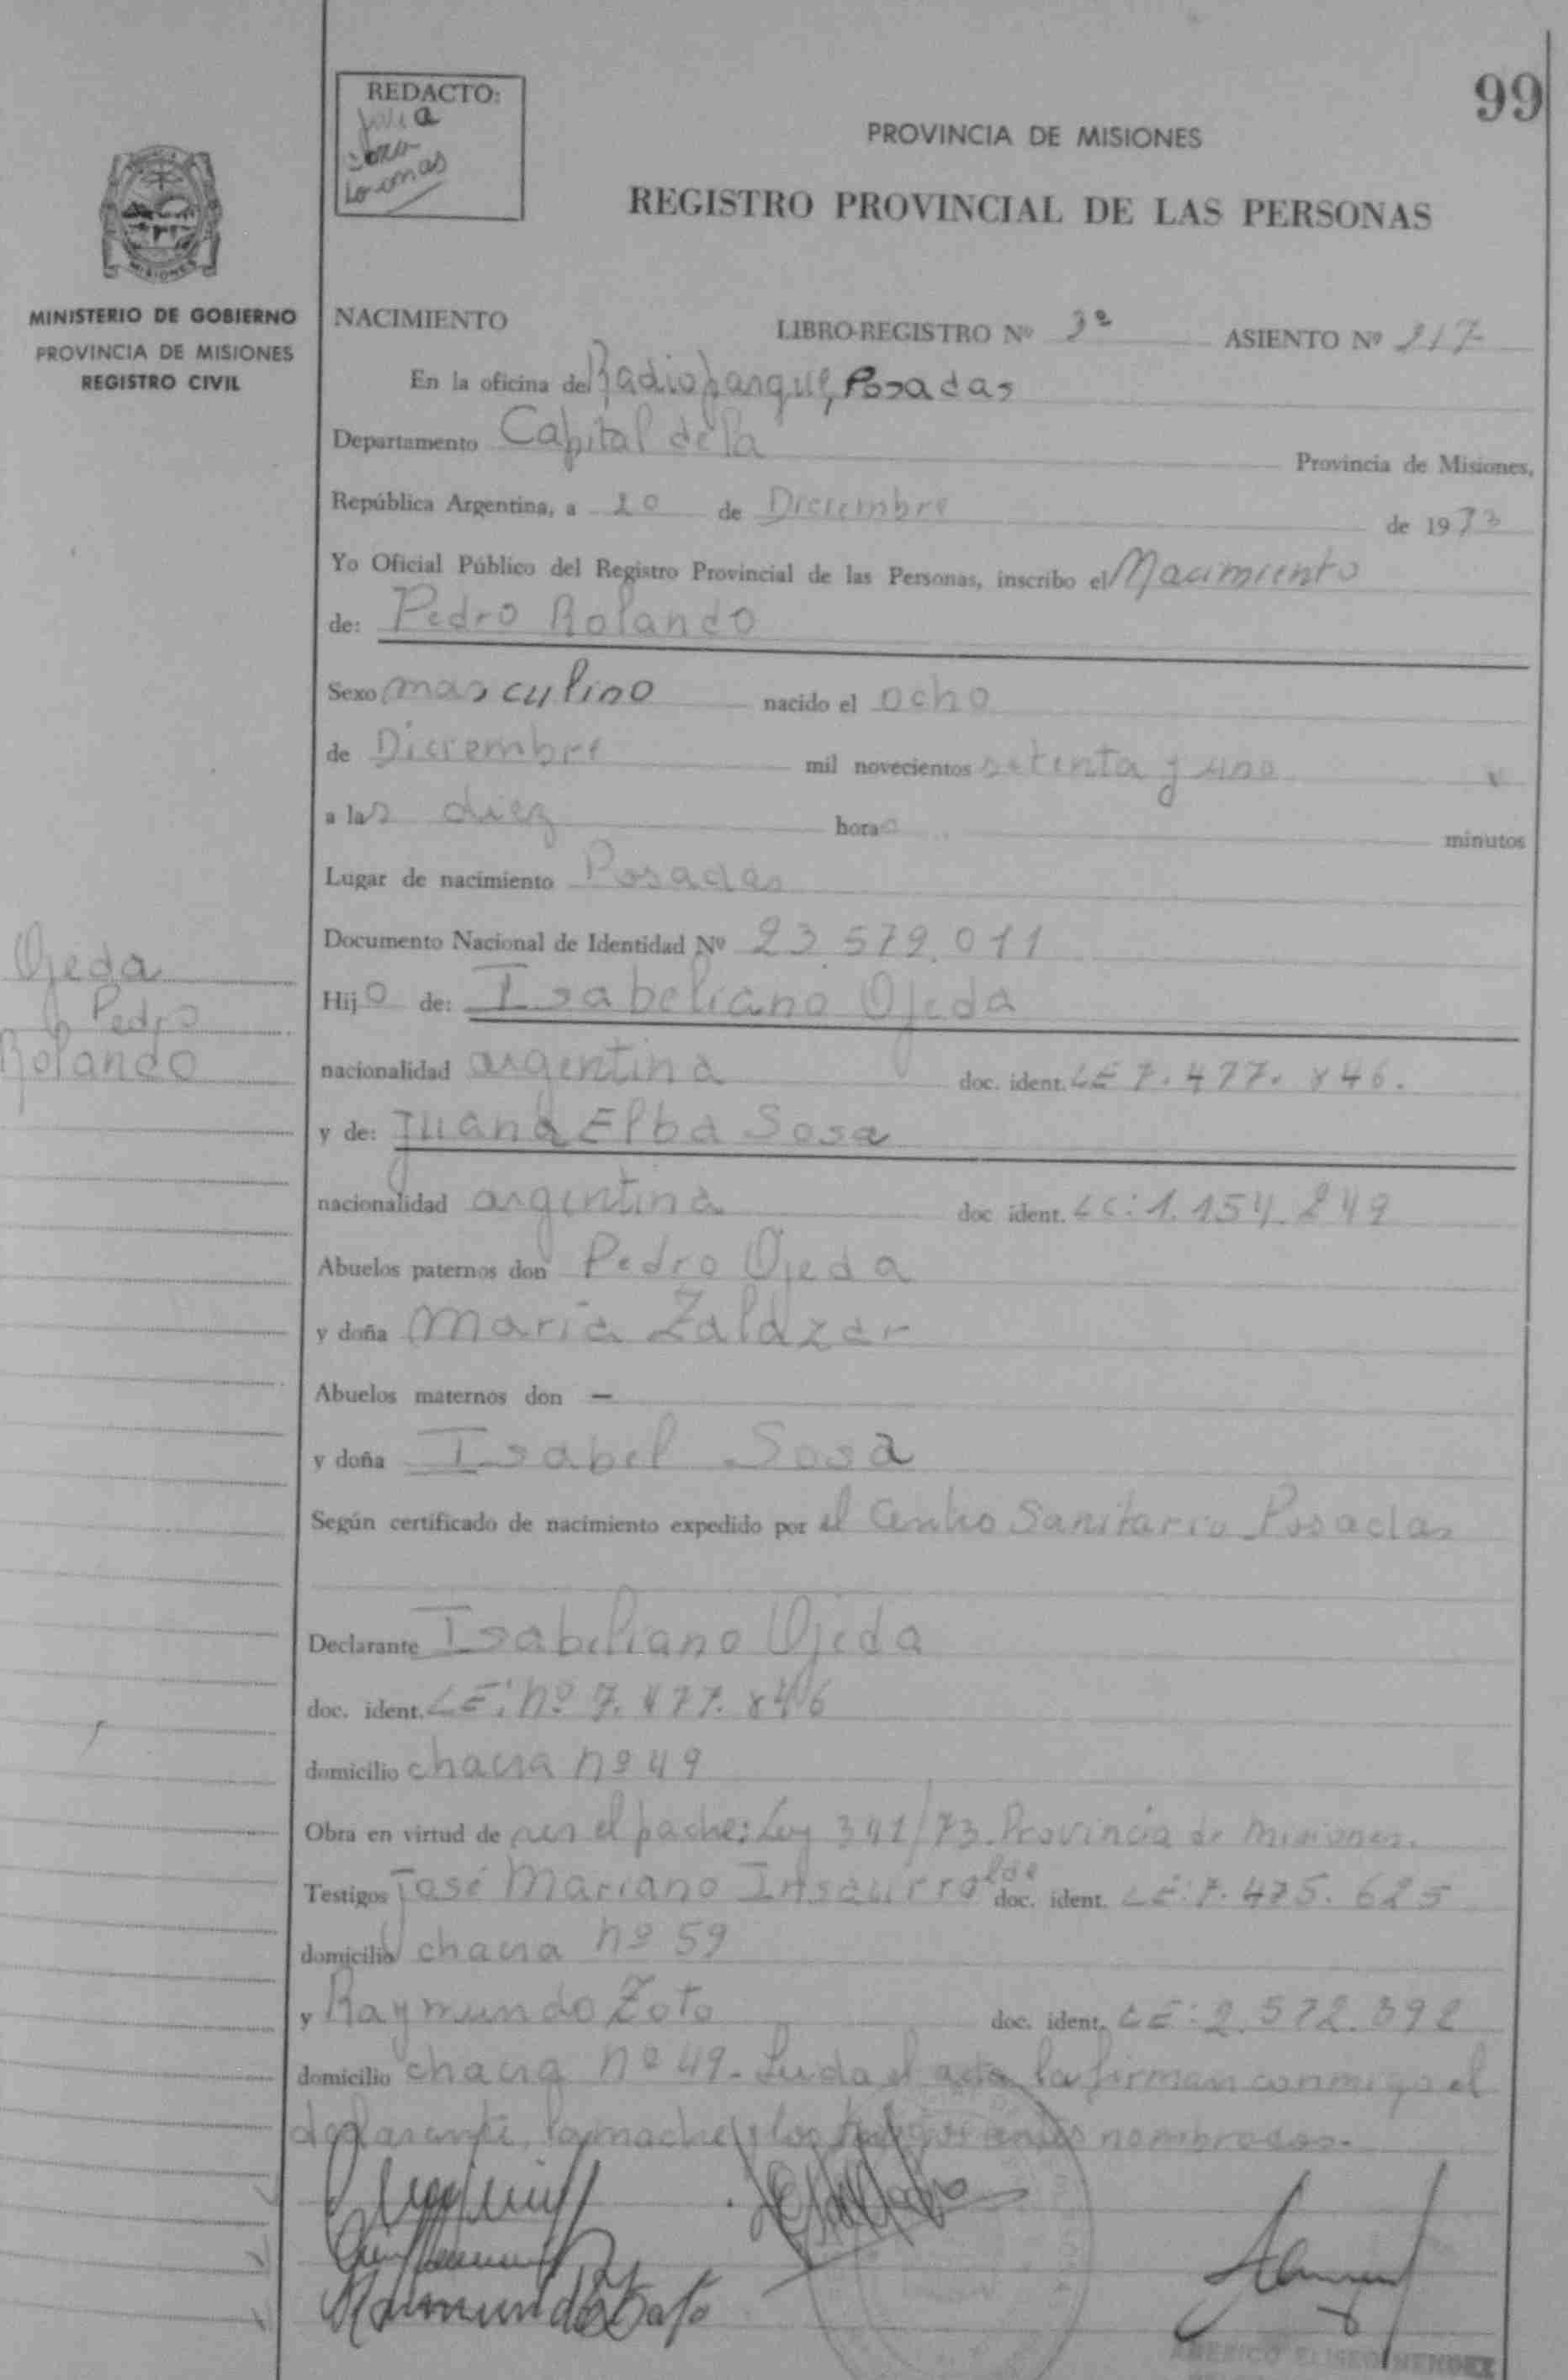 99
REDACTO:
PROVINCIA DE MISIONES
REGISTRO PROVINCIAL DE LAS PERSONAS
MISIONES
MINISTERIO DE GOBIERNO
PROVINCIA DE MISIONES
REGISTRO CIVIL
NACIMIENTO LIBRO-REGISTRO Nº 3º ASIENTO Nº 217
En la oficina de Radioparque, Posadas
Departamento Capital de la Provincia de Misiones,
República Argentina, a 20 de Diciembre de 1973
Yo Oficial Público del Registro Provincial de las Personas, inscribo el Nacimiento
de: Pedro Rolando
Sexo masculino nacido el ocho
de Diciembre mil novecientos setenta y uno
a las diez horas minutos
Lugar de nacimiento Posadas
Documento Nacional de Identidad Nº 23.579.011
Ojeda
Pedro
Rolando
Hijo de: Isabeliano Ojeda
nacionalidad argentina doc. ident. LE 7.477.846.
y de: Juana Elba Sosa
nacionalidad argentina doc ident. LC: 1.154.249
Abuelos paternos don Pedro Ojeda
y doña Maria Zalazar
Abuelos maternos don —
y doña Isabel Sosa
Según certificado de nacimiento expedido por el Centro Sanitario Posadas
Declarante Isabeliano Ojeda
doc. ident. LE: nº 7.477.846
domicilio chacra nº 49
Obra en virtud de ser el padre: Ley 341/73. Provincia de Misiones.
Testigos José Mariano Insaurralde doc. ident. LE: 7.475.625
domicilio chacra nº 59
y Raymundo Zoto doc. ident. LE: 2.572.392
domicilio chacra nº 49. Leida el acta la firman conmigo el
declarante, la madre y los testigos antes nombrados.
AMERICO ELISEO MENDEZ